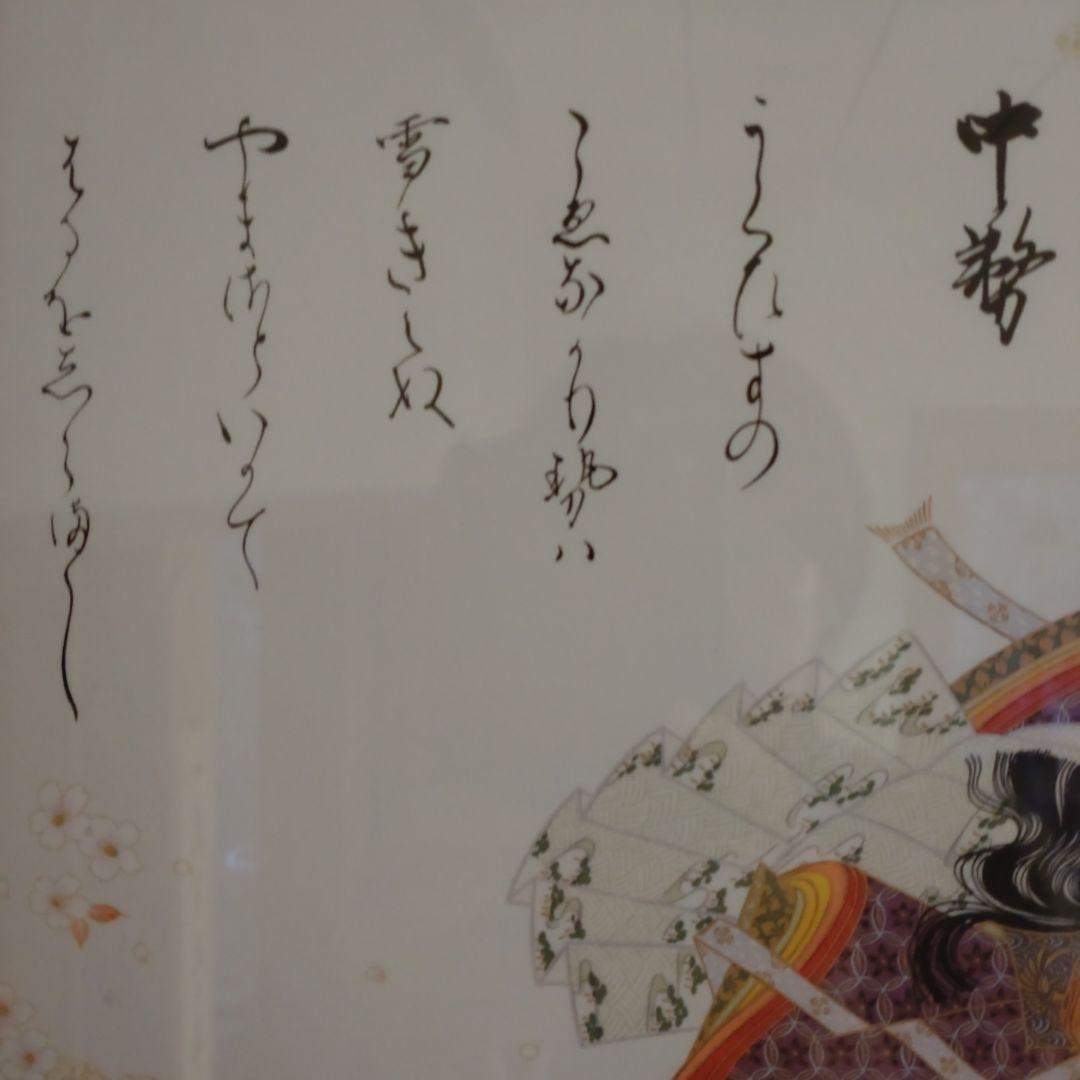 中務
うくひすの
こゑなかり勢ハ
雪きえぬ
やまさといかて
はるをしらまし